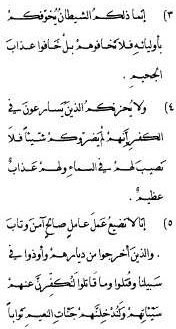 ٣) إنما ذلكم الشيطان يخوفكم
بأوليائه فلا تخافوهم بل خافوا عذاب
الجحيم .
٤) ولا يحزنكم الذين يسارعون في
الكفر إنهم لم يضروكم شيئاً فلا
نصيب لهم في السماء ولهم عذابٌ
عظيمٌ .
٥) إنا لا نضيع عمل عامل صالح آمن وتاب
. والذين أخرجوا من ديارهم وأوذوا في
سبيلنا وقتلوا وما قاتلوا لنكفرن عنهم
سيئاتهم ولندخلنهم جنات النعيم ثواباً